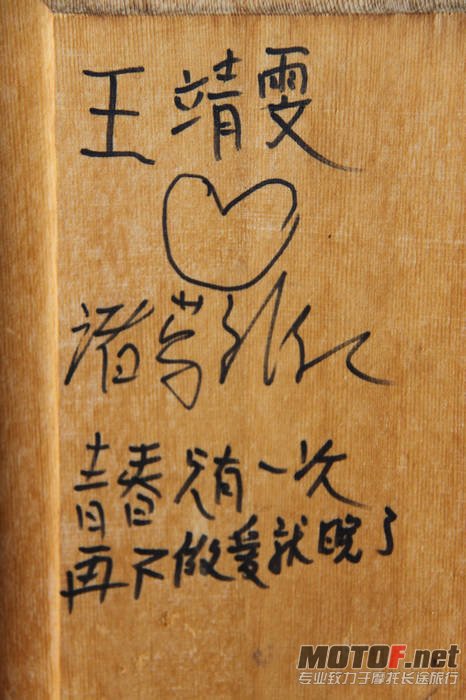 王靖雯
诸葛
青春只有一次
再不做爱就晚了
MOTOF.net
专业致力于摩托长途旅行